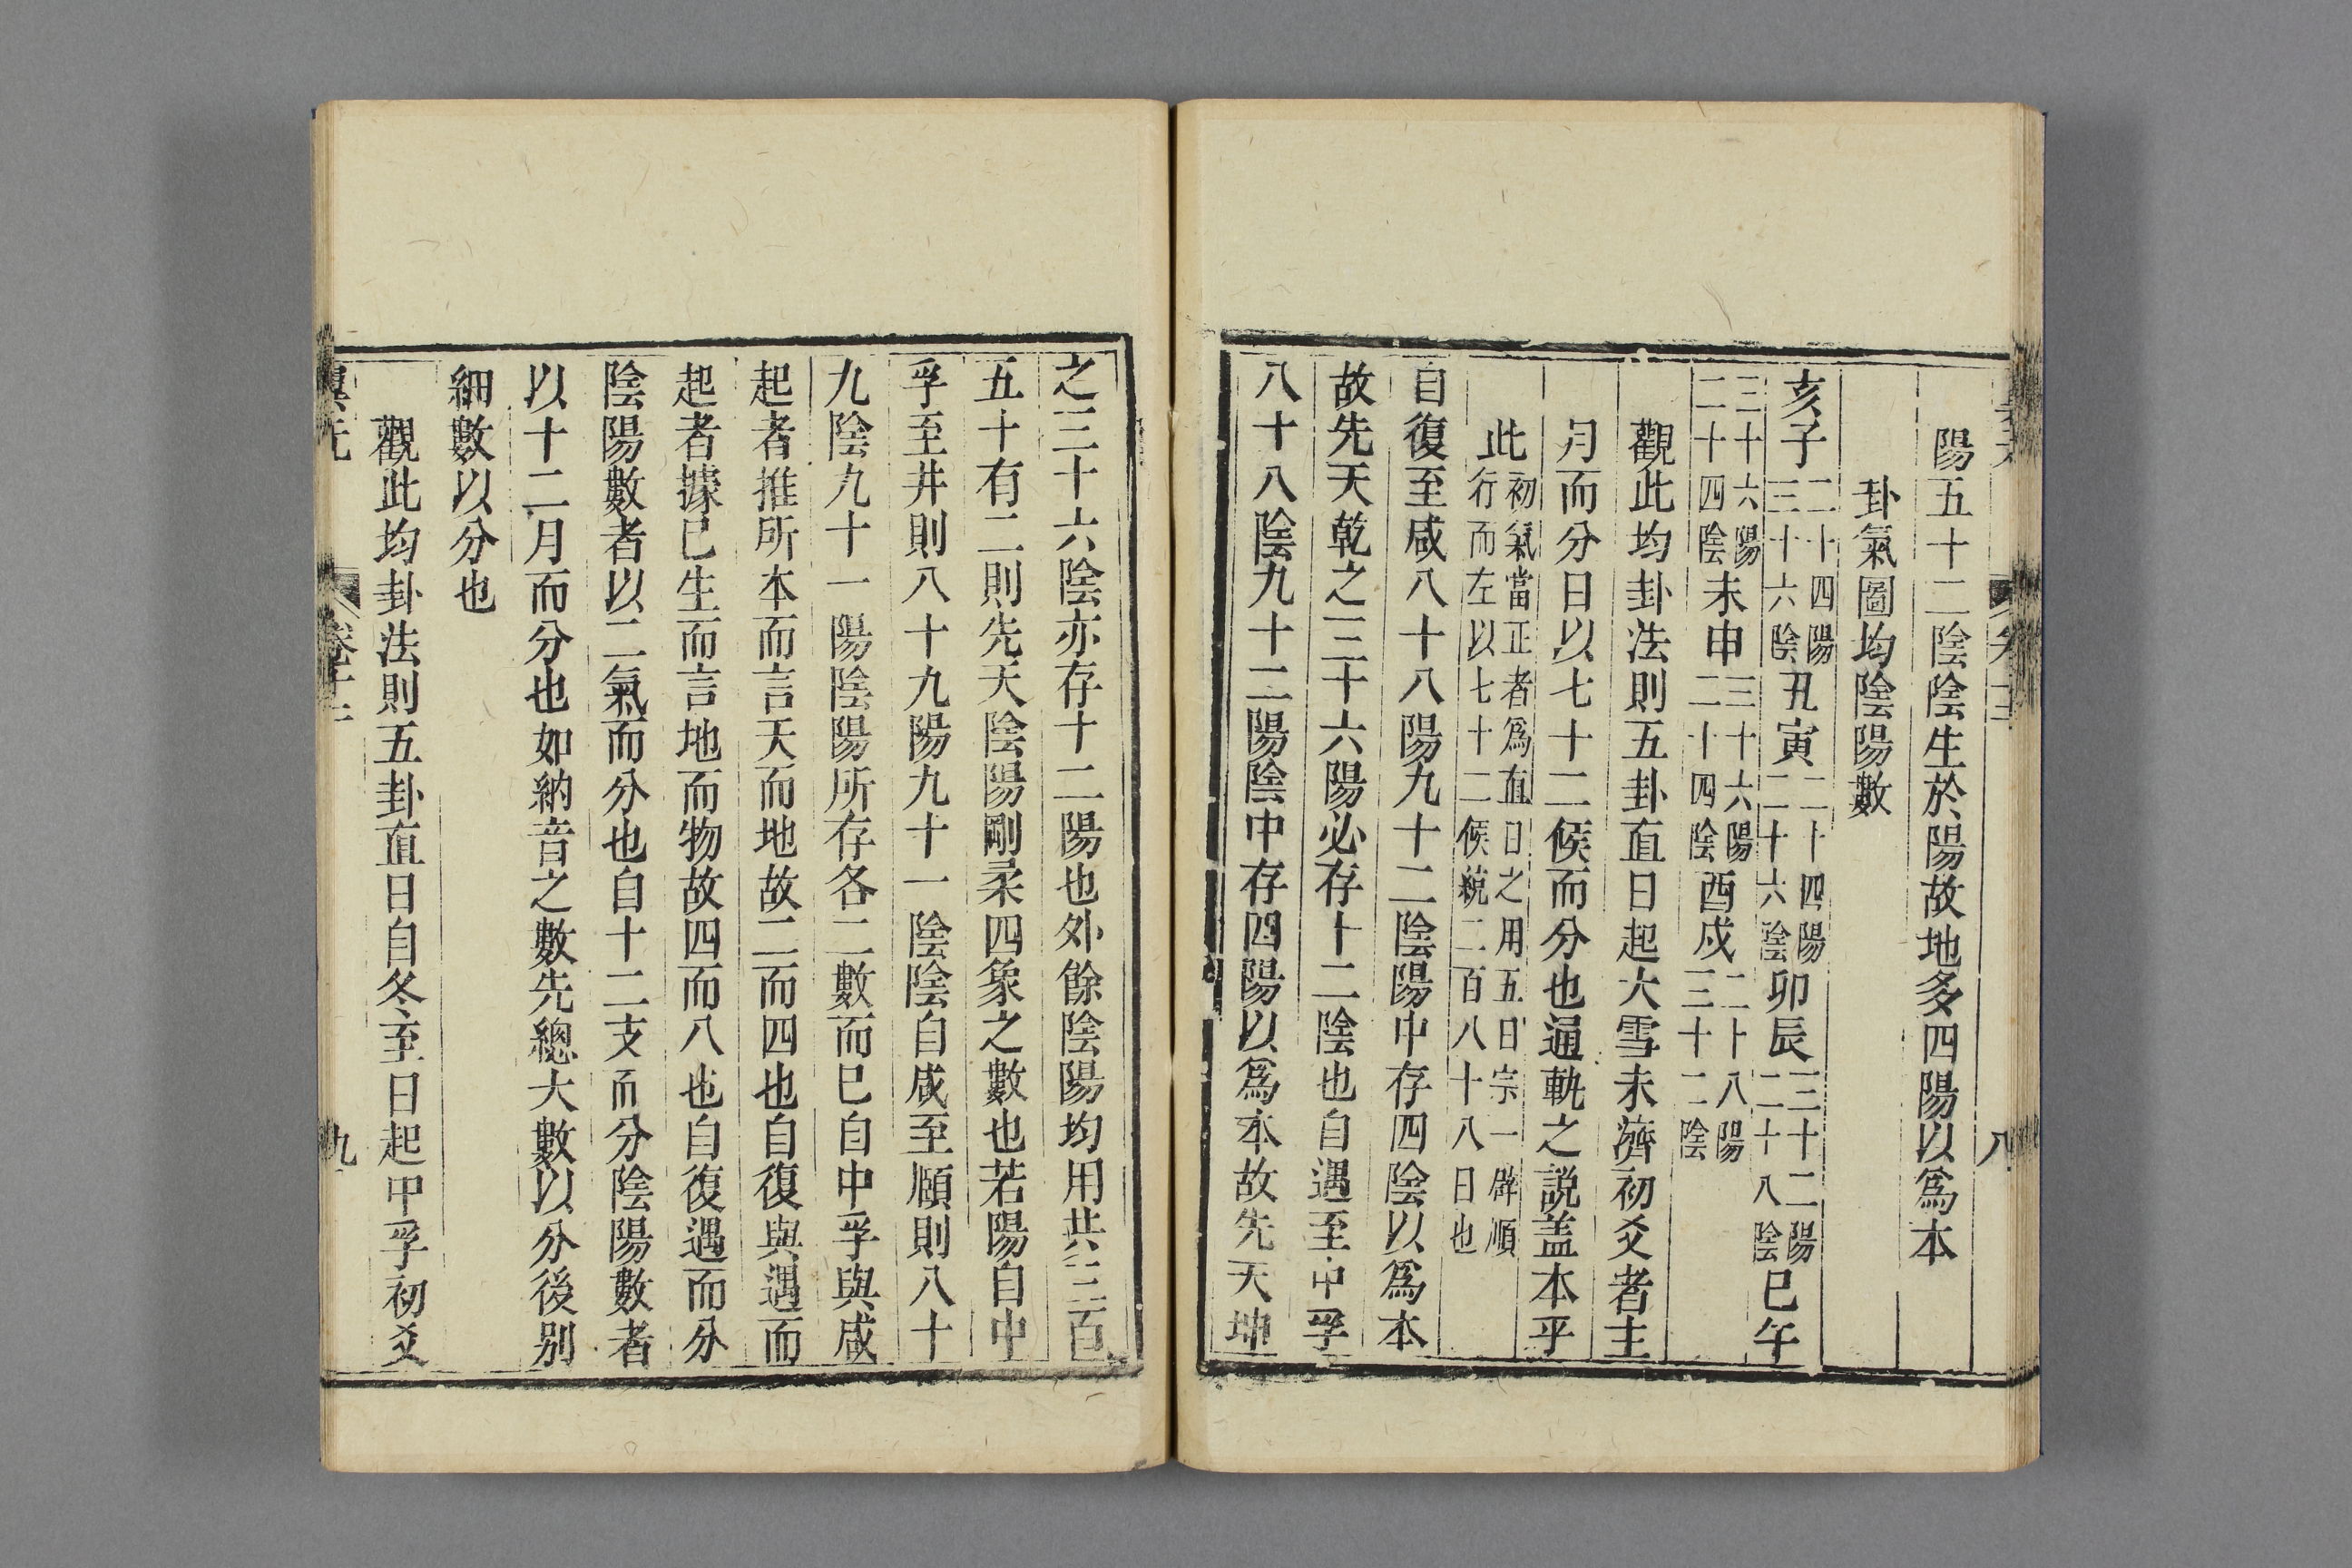 陽五十二陰陰生於陽故地多四陽以爲本
卦氣圖均陰陽數
亥子二十四陽三十六陰丑寅二十四陽二十六陰卯辰三十二陽二十八陰巳午
三十六陽二十四陰未申三十六陽二十四陰酉戍二十八陽三十二陰
觀此均卦法則五卦直日起大雪未濟初爻者主
月而分日以七十二候而分也通軌之説盖本乎
此初氣當正者爲直日之用五日宗一辟順行而左以七十二候統二百八十八日也
自復至咸八十八陽九十二陰陽中存四陰以爲本
故先天乾之三十六陽必存十二陰也自遇至中孚
八十八陰九十二陽陰中存四陽以爲本故先天坤
之三十六陰亦存十二陽也外餘陰陽均用共三百
五十有二則先天陰陽剛柔四象之數也若陽自中
孚至井則八十九陽九十一陰陰自咸至頤則八十
九陰九十一陽陰陽所存各二數而已自中孚與咸
起者推所本而言天而地故二而四也自復與遇而
起者據已生而言地而物故四而八也自復遇而分
陰陽數者以二氣而分也自十二支而分陰陽數者
以十二月而分也如納音之數先總大數以分後别
細數以分也
觀此均卦法則五卦直日自冬至日起中孚初爻
九